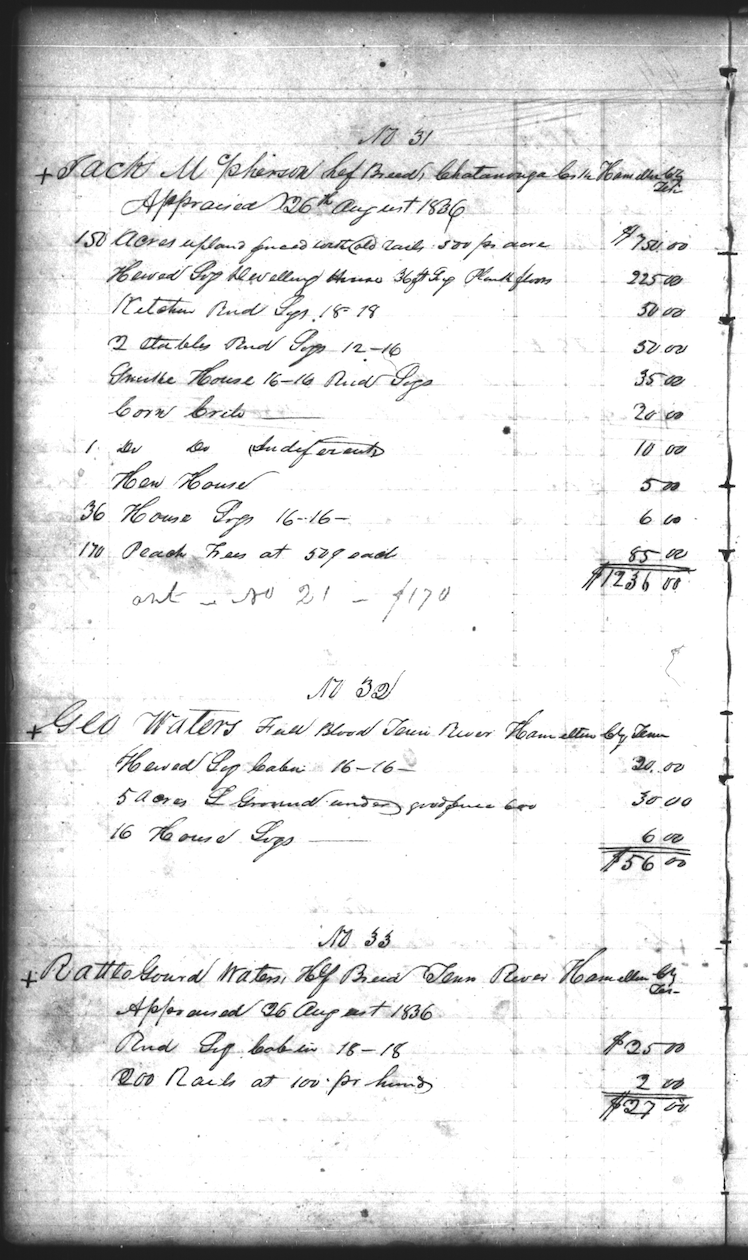 No 31
+ Jack McPherson hef Breed, Chatanooga Crk Hamelton Cty
Ten
Appraised 26th August 1836
150 Acres upland fenced with old rails 500 pr acre $750.00
Hewed Log Dwelling House 36 ft Lg Plank floors 225 00
Kitchen Rnd Logs 18-18 50 00
2 Stables Rnd Logs 12-16 50 00
Smoke House 16-16 Rnd Logs 35 00
Corn Crib 20 00
1 Do Do Indiferent 10 00
Hen House 5 00
36 House Logs 16-16- 6 00
170 Peach Trees at 50¢ each 85 00
$1236 00
No 21 - $170
No 32
+ Geo Waters Full Blood Tenn River Hamelton Cty Tenn
Hewed Log Cabin 16-16- 20.00
5 Acres L Ground under good fence 600 30 00
16 House Logs 6 00
$56 00
No 33
+ Rattle Gourd Waters, Hf Breed Tenn River Hamelton Cty
Ten-
Appraised 26 August 1836
Rnd Log Cabin 18-18 $25 00
200 Rails at 100 pr hund 2 00
$27 00